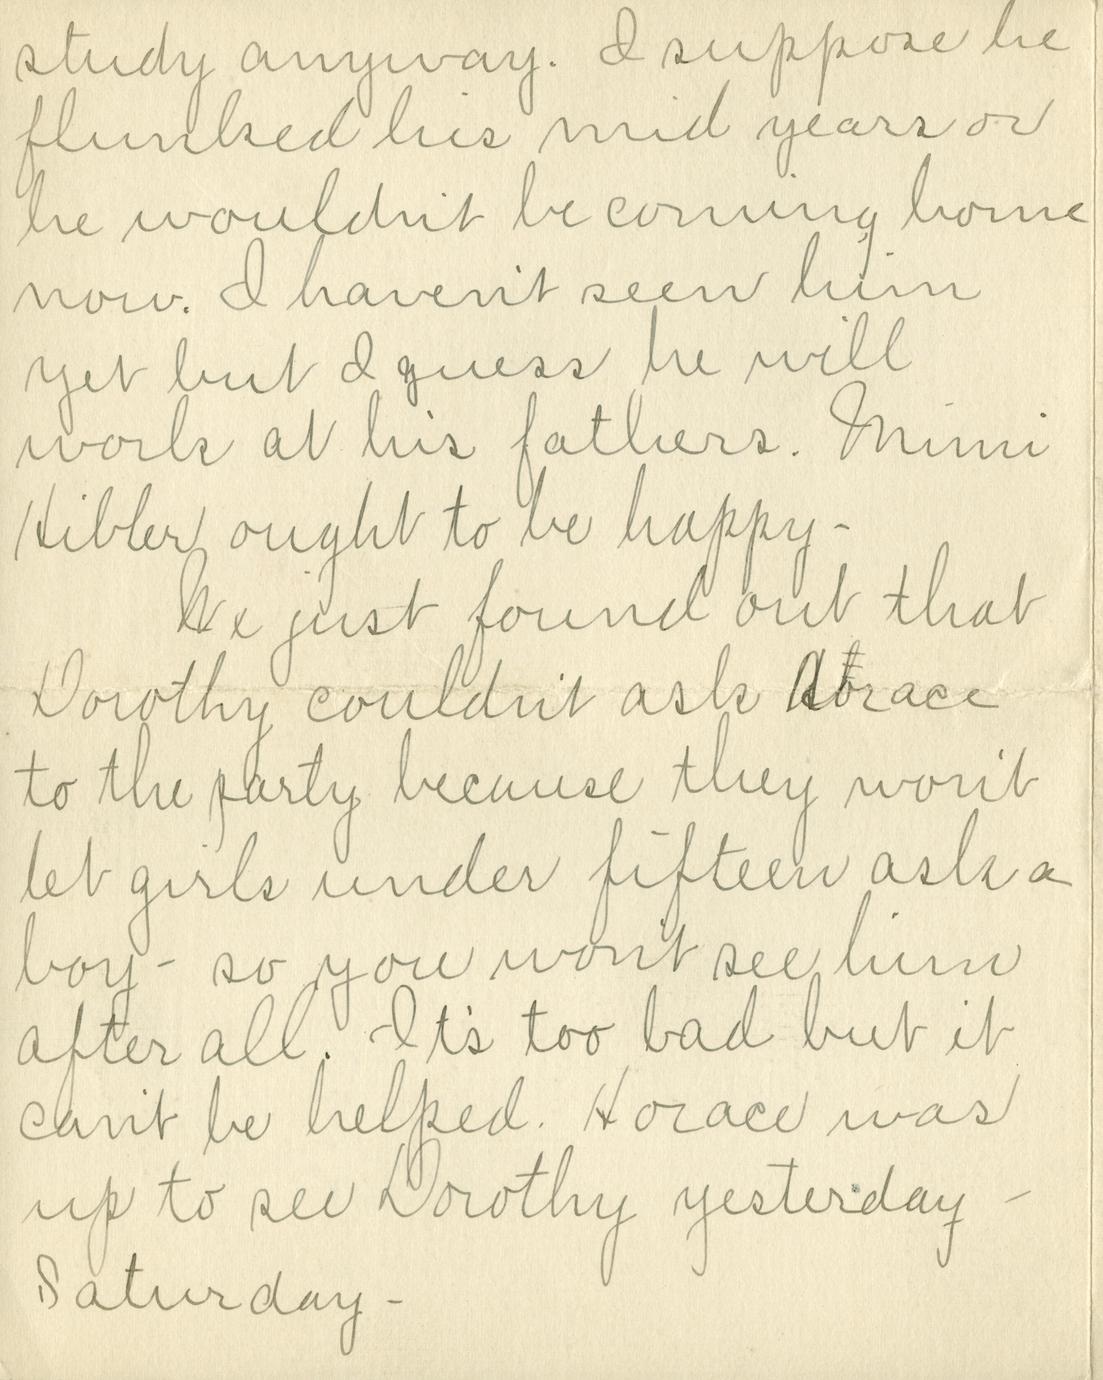 study anyway. I suppose he
flunked his mid years or
he wouldn't be coming home
now. I haven't seen him
yet but I guess he will
work at his fathers. Mimi
Hibler ought to be happy -
We just found out that
Dorothy couldn't ask Horace
to the party because they won't
let girls under fifteen ask a
boy - so you won't see him
after all. It's too bad but it
can't be helped. Horace was
up to see Dorothy yesterday -
Saturday -